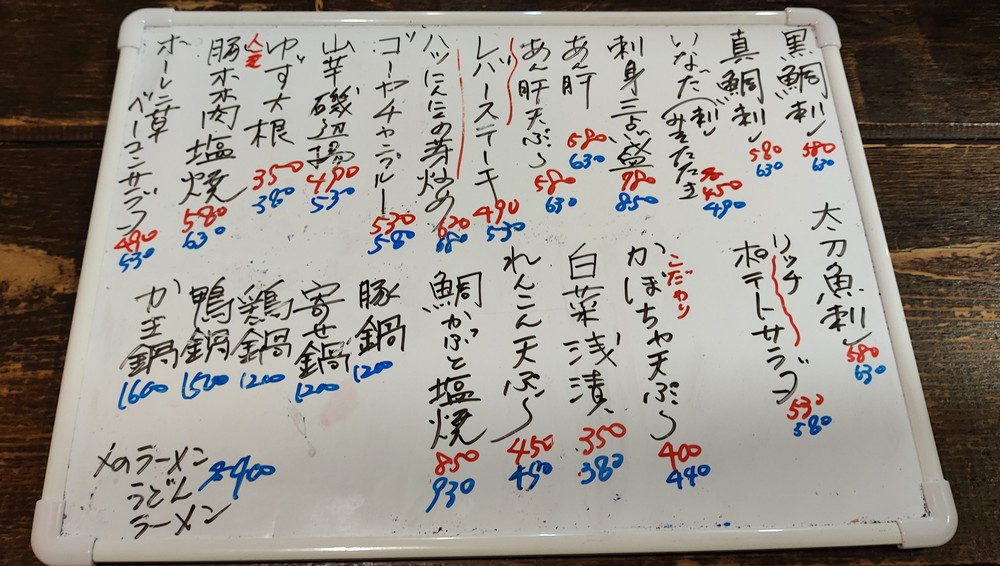 黒鯛刺 580 630
真鯛刺 580 630
いなだ(刺 みそたたき 各450 490
刺身三点盛 780 850
あん肝 580 630
あん肝天ぷら 580 630
レバーステーキ 490 530
ハツにんにくの芽炒め 620 680
ゴーヤチャンプルー 530 580
山芋磯辺揚 490 530
人気
ゆず大根 350 380
豚ホホ肉塩焼 580 630
ホーレン草
ベーコンサラダ 490 530
太刀魚刺 580 630
リッチ
ポテトサラダ 530 580
こだわり
かぼちゃ天ぷら 400 440
白菜浅漬 350 380
れんこん天ぷら 450 490
鯛かぶと塩焼 850 930
豚鍋 1200
寄せ鍋 1200
鶏鍋 1200
鴨鍋 1500
かき鍋 1600
〆のラーメン
うどん 各400
ラーメン